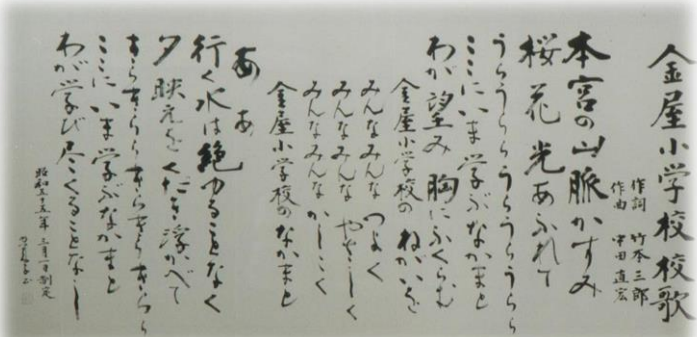 金屋小学校校歌
作詞 竹本三郎
作曲 中田直宏
本宮の山脈かすみ
桜花光あふれて
うらうららうらうらうらら
ここにいま学ぶなかまと
わが望み胸にふくらむ
金屋小学校の ねがいを
みんなみんな つよく
みんなみんな やさしく
みんなみんな かしこく
金屋小学校のなかまと
ああ
行く水は絶ゆることなく
夕映えをくだき浮かべて
きらきららきらきらきらら
ここにいま学ぶなかまと
わが学び尽くることなし
昭和五十五年 三月一日制定